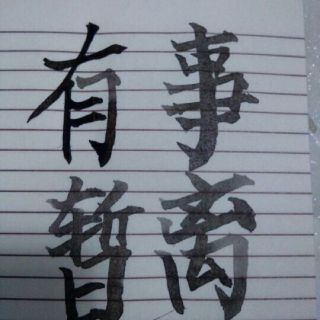 有事
暂离